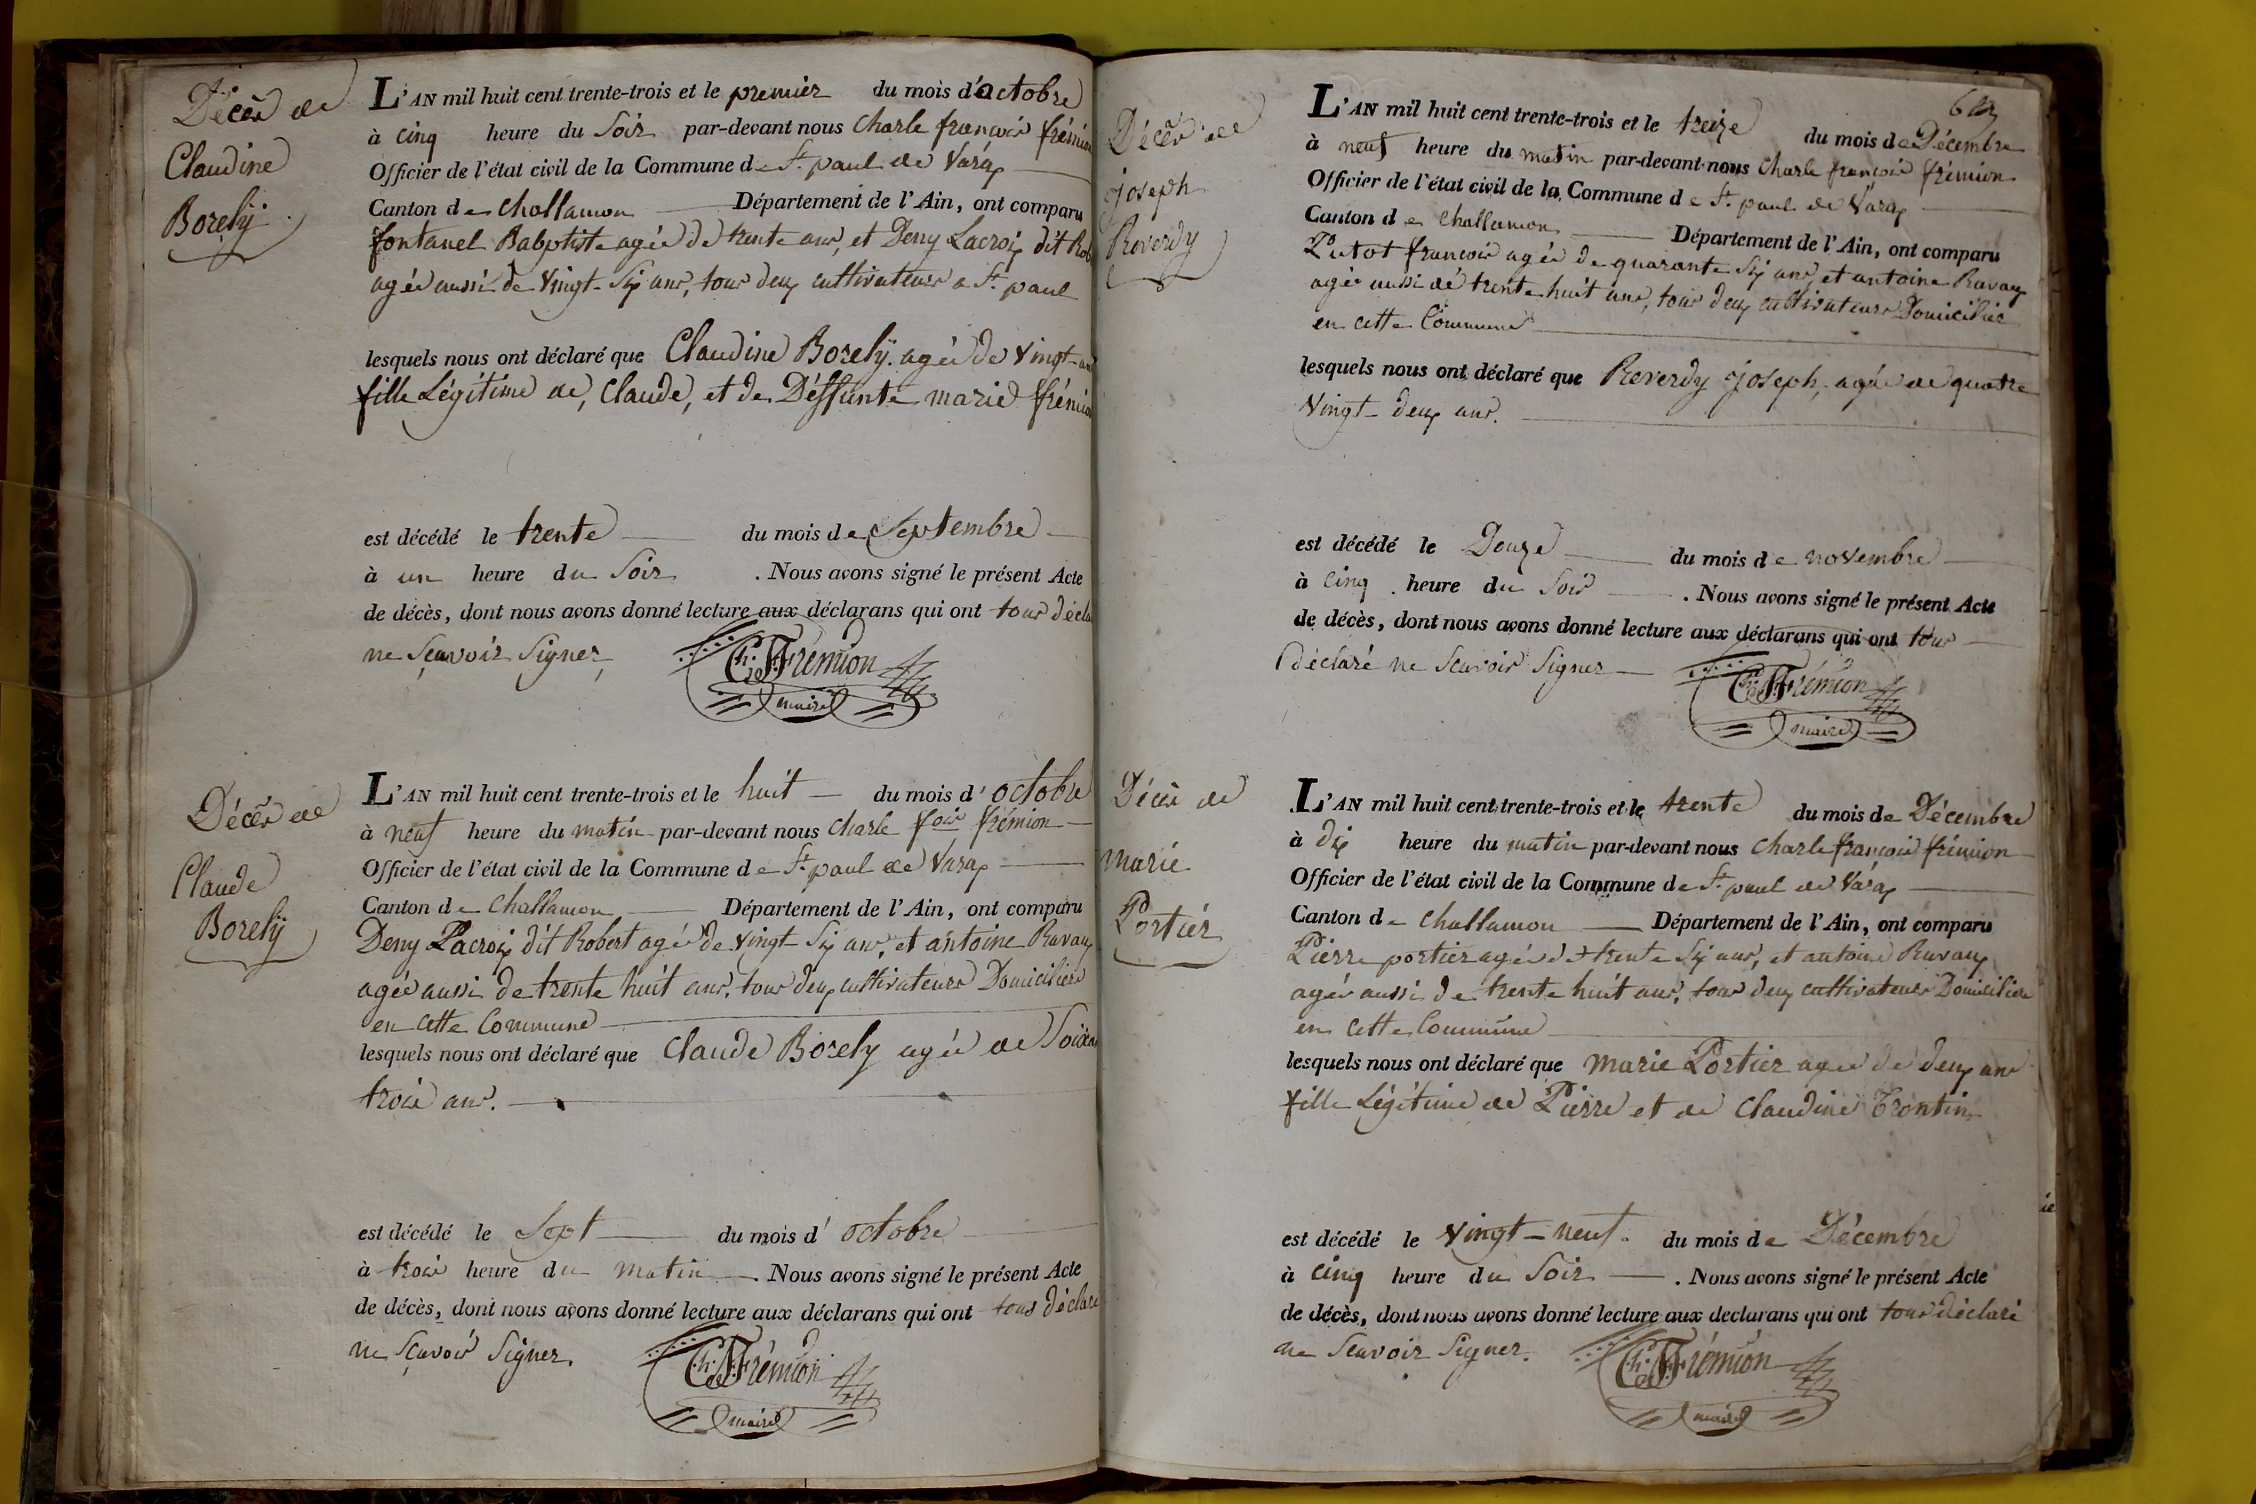 Décès de
Claudine
Borelÿ
L'AN mil huit cent trente-trois et le premier du mois d'octobre
à cinq heure du Soir par-devant nous Charle françois frémion
Officier de l'état civil de la Commune de St. paul de Varax
Canton de Challamon Département de l'Ain, ont comparu
fontanel Babptiste agée de trente ans, et Deny Lacroix dit Rob
agée aussi de vingt-six ans, tous deux cultivateurs a St. paul
lesquels nous ont déclaré que Claudine Borelÿ. agée de vingt-ans
fille Légitime de, Claude, et de Déffunte marie frémion
est décédé le trente du mois de Septembre
à un heure du Soir . Nous avons signé le présent Acte
de décès, dont nous avons donné lecture aux déclarans qui ont tous décla
ne Sçavoir Signer,
Ch. F. Frémion
maire
Décès de
Claude
Borelÿ
L'AN mil huit cent trente-trois et le huit du mois d'octobre
à neuf heure du matin par-devant nous Charle fois frémion
Officier de l'état civil de la Commune de St. paul de Varax
Canton de Challamon Département de l'Ain, ont comparu
Deny Lacroix dit Robert agée de vingt-six ans, et antoine Ravaux
agée aussi de trente huit ans, tous deux cultivateurs Domiciliés
en cette Commune
lesquels nous ont déclaré que Claude Borely agée de Soixan
trois ans.
est décédé le Sept du mois d'octobre
à trois heure du matin . Nous avons signé le présent Acte
de décès, dont nous avons donné lecture aux déclarans qui ont tous déclaré
ne Sçavoir Signer.
Ch. F. Frémion
maire
Décès de
joseph
Reverdy
L'AN mil huit cent trente-trois et le treize du mois de Décembre
à neuf heure du matin par-devant nous Charle françois frémion
Officier de l'état civil de la Commune de St. paul de Varax
Canton de Challamon Département de l'Ain, ont comparu
françois agée de quarante six ans, et antoine Ravaux
agée aussi de trente huit ans, tous deux cultivateurs Domiciliés
en cette Commune
lesquels nous ont déclaré que Reverdy joseph, agée de quatre
Vingt-deux ans.
est décédé le Douze du mois de novembre
à cinq heure du Soir . Nous avons signé le présent Acte
de décès, dont nous avons donné lecture aux déclarans qui ont tous
déclaré ne Scavoir Signer
Ch. F. Frémion
maire
Décès de
marie
Portier
L'AN mil huit cent trente-trois et le trente du mois de Décembre
à dix heure du matin par-devant nous Charle françois frémion
Officier de l'état civil de la Commune de St. paul de Varax
Canton de Challamon Département de l'Ain, ont comparu
Pierre portier agée de trente six ans, et antoine Ravaux
agée aussi de trente huit ans, tous deux cultivateurs Domiciliés
en cette Commune
lesquels nous ont déclaré que marie Portier agée de deux ans
fille Légitime de Pierre et de Claudine Trontin
est décédé le vingt-neuf. du mois de Décembre
à cinq heure du Soir . Nous avons signé le présent Acte
de décès, dont nous avons donné lecture aux déclarans qui ont tous déclaré
ne Scavoir Signer.
Ch. F. Frémion
maire